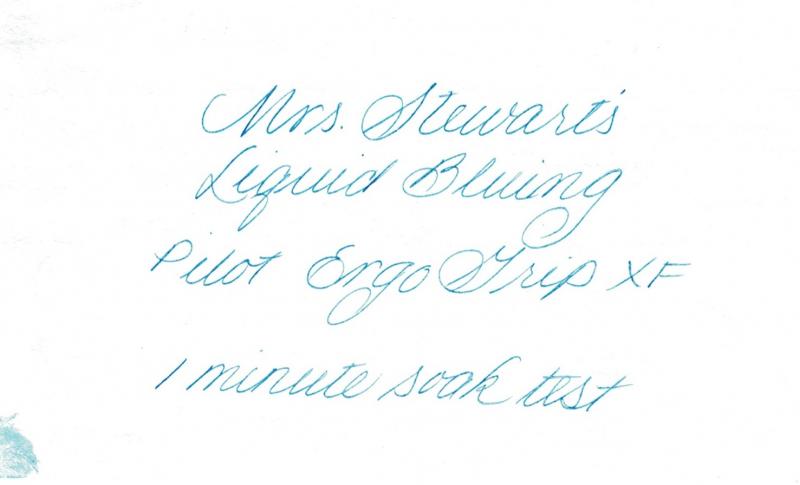 Mrs. Stewart's
Liquid Bluing
Pilot Ergo Grip XF
1 minute soak test